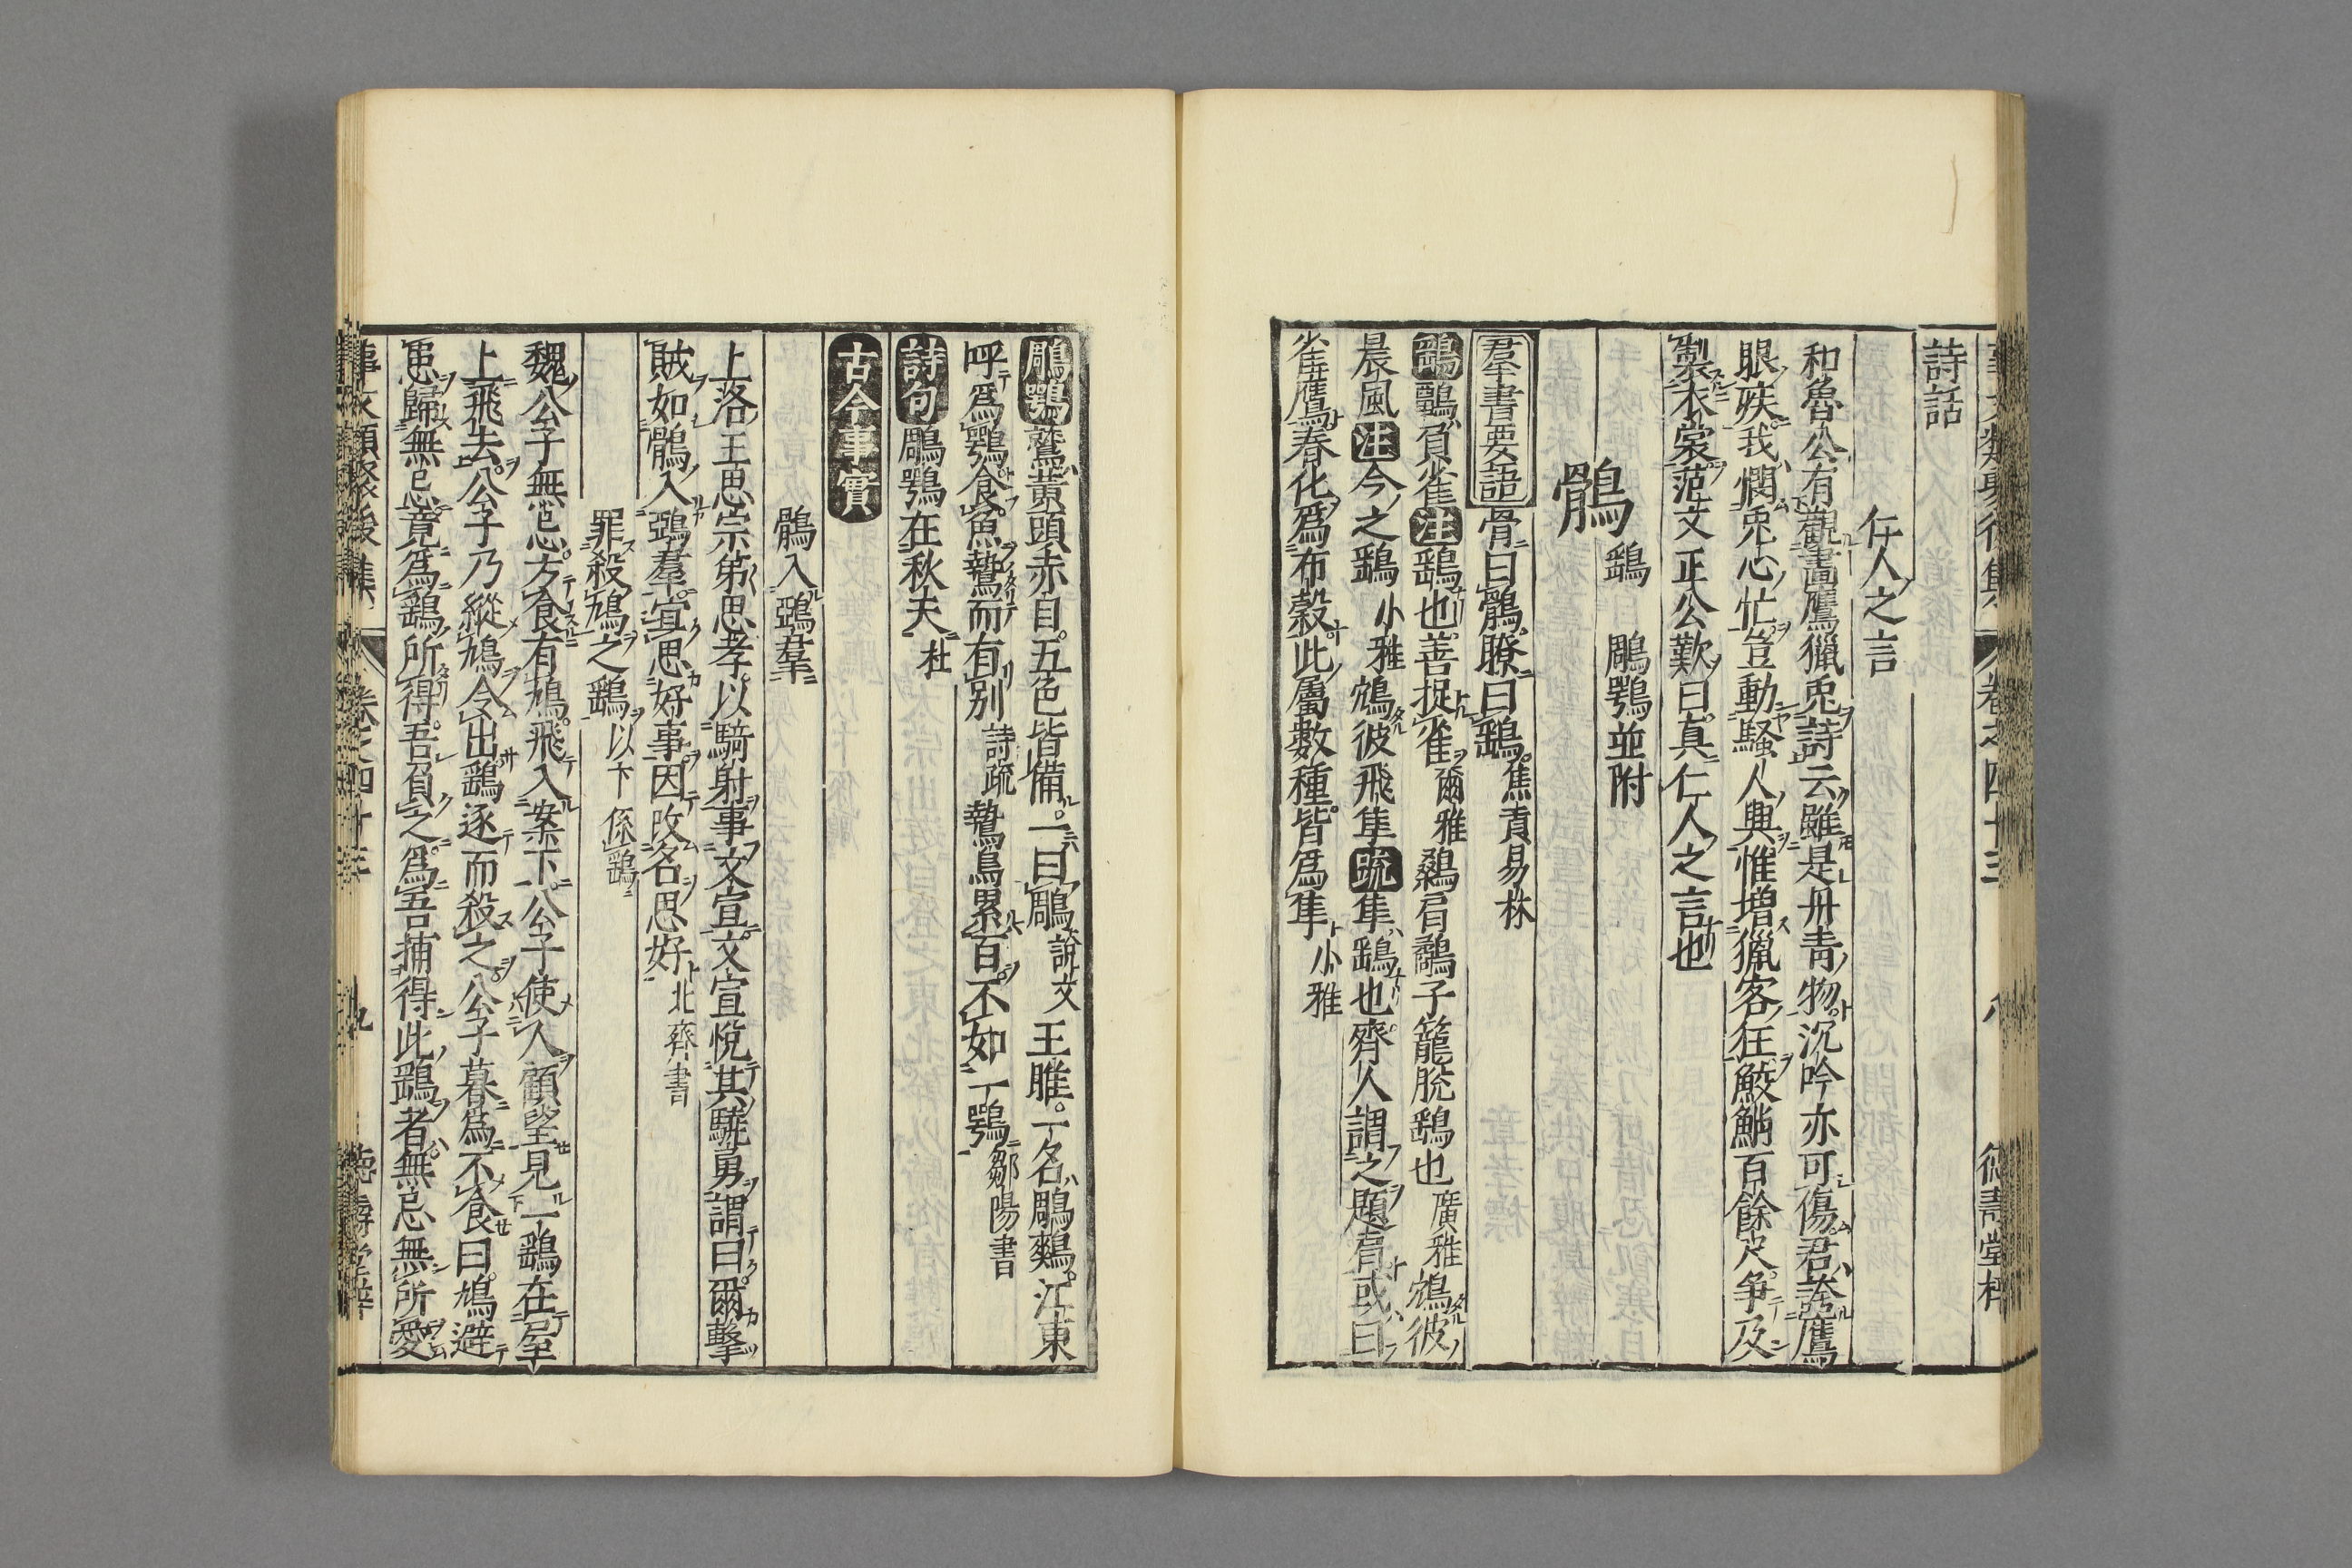 詩話
仁人之言
和魯公有觀畫鷹獵兎詩云雖是丹青物沉吟亦可傷君誇鷹
眼疾我憫兎心忙豈動騷人興惟增獵客狂鮫鮹百餘尺爭及
製衣裳范文正公歎曰真仁人之言也
鶻 鷂 鵰鶚並附
羣書要語骨曰鶻瞭曰鷂焦貢易林
鷂鸇負雀注鷂也善捉雀爾雅鷣肩鸇子籠脫鷂也廣雅鴥彼
晨風注今之鷂小雅鴥彼飛隼疏隼鷂也齊人謂之題肩或曰
雀鷹春化爲布榖此屬數種皆爲隼小雅
鵰鶚鷲黃頭赤目五色皆備一曰鵰說文王雎一名鵰鷞江東
呼爲鶚食魚鷙而有別詩疏鷙鳥累百不如一鶚鄒陽書
詩句鵰鶚在秋天杜
古今事實
鶻入鵶羣
上洛王思宗弟思孝以騎射事文宣文宣悅其驍勇謂曰爾擊
賊如鶻入鵶羣宜思好事因改名思好北齊書
罪殺鳩之鷂以下係鷂
魏公子無忌方食有鳩飛入案下公子使人顧望見一鷂在屋
上飛去公子乃縱鳩令出鷂逐而殺之公子暮爲不食曰鳩避
患歸無忌竟爲鷂所得吾負之爲吾捕得此鷂者無忌無所愛
事文類聚後集 卷之四十三 九